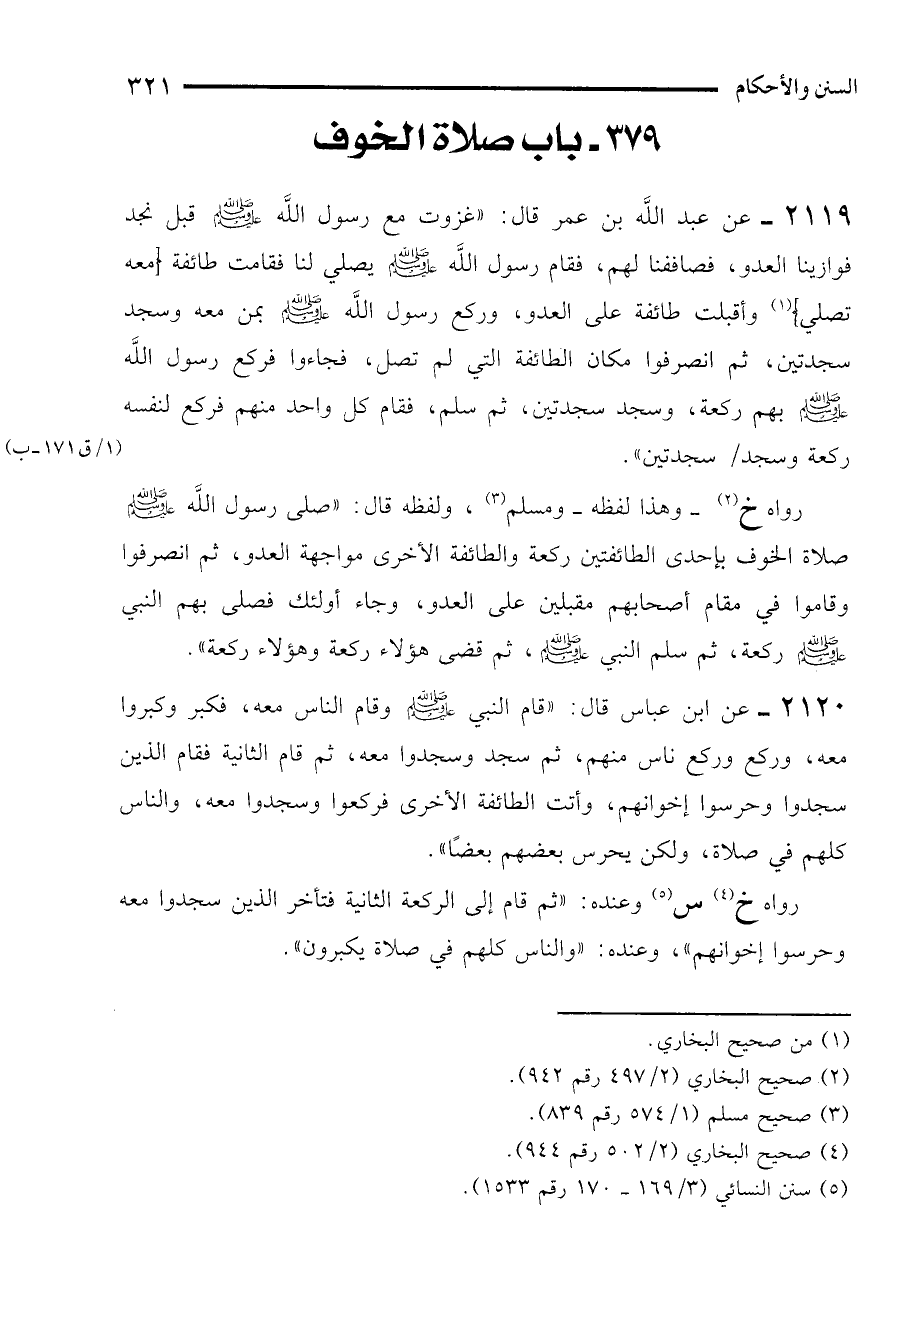 السنن والأحكام ٣٢١
٣٧٩ ـ باب صلاة الخوف
٢١١٩ ـ عن عبد اللَّه بن عمر قال: «غزوت مع رسول اللَّه ﷺ قبل نجد
فوازينا العدو، فصاففنا لهم، فقام رسول اللَّه ﷺ يصلي لنا فقامت طائفة {معه
تصلي}(١) وأقبلت طائفة على العدو، وركع رسول اللَّه ﷺ بمن معه وسجد
سجدتين، ثم انصرفوا مكان الطائفة التي لم تصل، فجاءوا فركع رسول اللَّه
ﷺ بهم ركعة، وسجد سجدتين، ثم سلم، فقام كل واحد منهم فركع لنفسه
ركعة وسجد/ سجدتين». (١/ق١٧١-ب)
رواه خ(٢) ـ وهذا لفظه ـ ومسلم(٣)، ولفظه قال: «صلى رسول اللَّه ﷺ
صلاة الخوف بإحدى الطائفتين ركعة والطائفة الأخرى مواجهة العدو، ثم انصرفوا
وقاموا في مقام أصحابهم مقبلين على العدو، وجاء أولئك فصلى بهم النبي
ﷺ ركعة، ثم سلم النبي ﷺ، ثم قضى هؤلاء ركعة وهؤلاء ركعة».
٢١٢٠ ـ عن ابن عباس قال: «قام النبي ﷺ وقام الناس معه، فكبر وكبروا
معه، وركع وركع ناس منهم، ثم سجد وسجدوا معه، ثم قام الثانية فقام الذين
سجدوا وحرسوا إخوانهم، وأتت الطائفة الأخرى فركعوا وسجدوا معه، والناس
كلهم في صلاة، ولكن يحرس بعضهم بعضًا».
رواه خ(٤) س(٥) وعنده: «ثم قام إلى الركعة الثانية فتأخر الذين سجدوا معه
وحرسوا إخوانهم»، وعنده: «والناس كلهم في صلاة يكبرون».
(١) من صحيح البخاري.
(٢) صحيح البخاري (٢/ ٤٩٧ رقم ٩٤٢).
(٣) صحيح مسلم (١/ ٥٧٤ رقم ٨٣٩).
(٤) صحيح البخاري (٢/ ٥٠٢ رقم ٩٤٤).
(٥) سنن النسائي (٣/ ١٦٩ ـ ١٧٠ رقم ١٥٣٣).